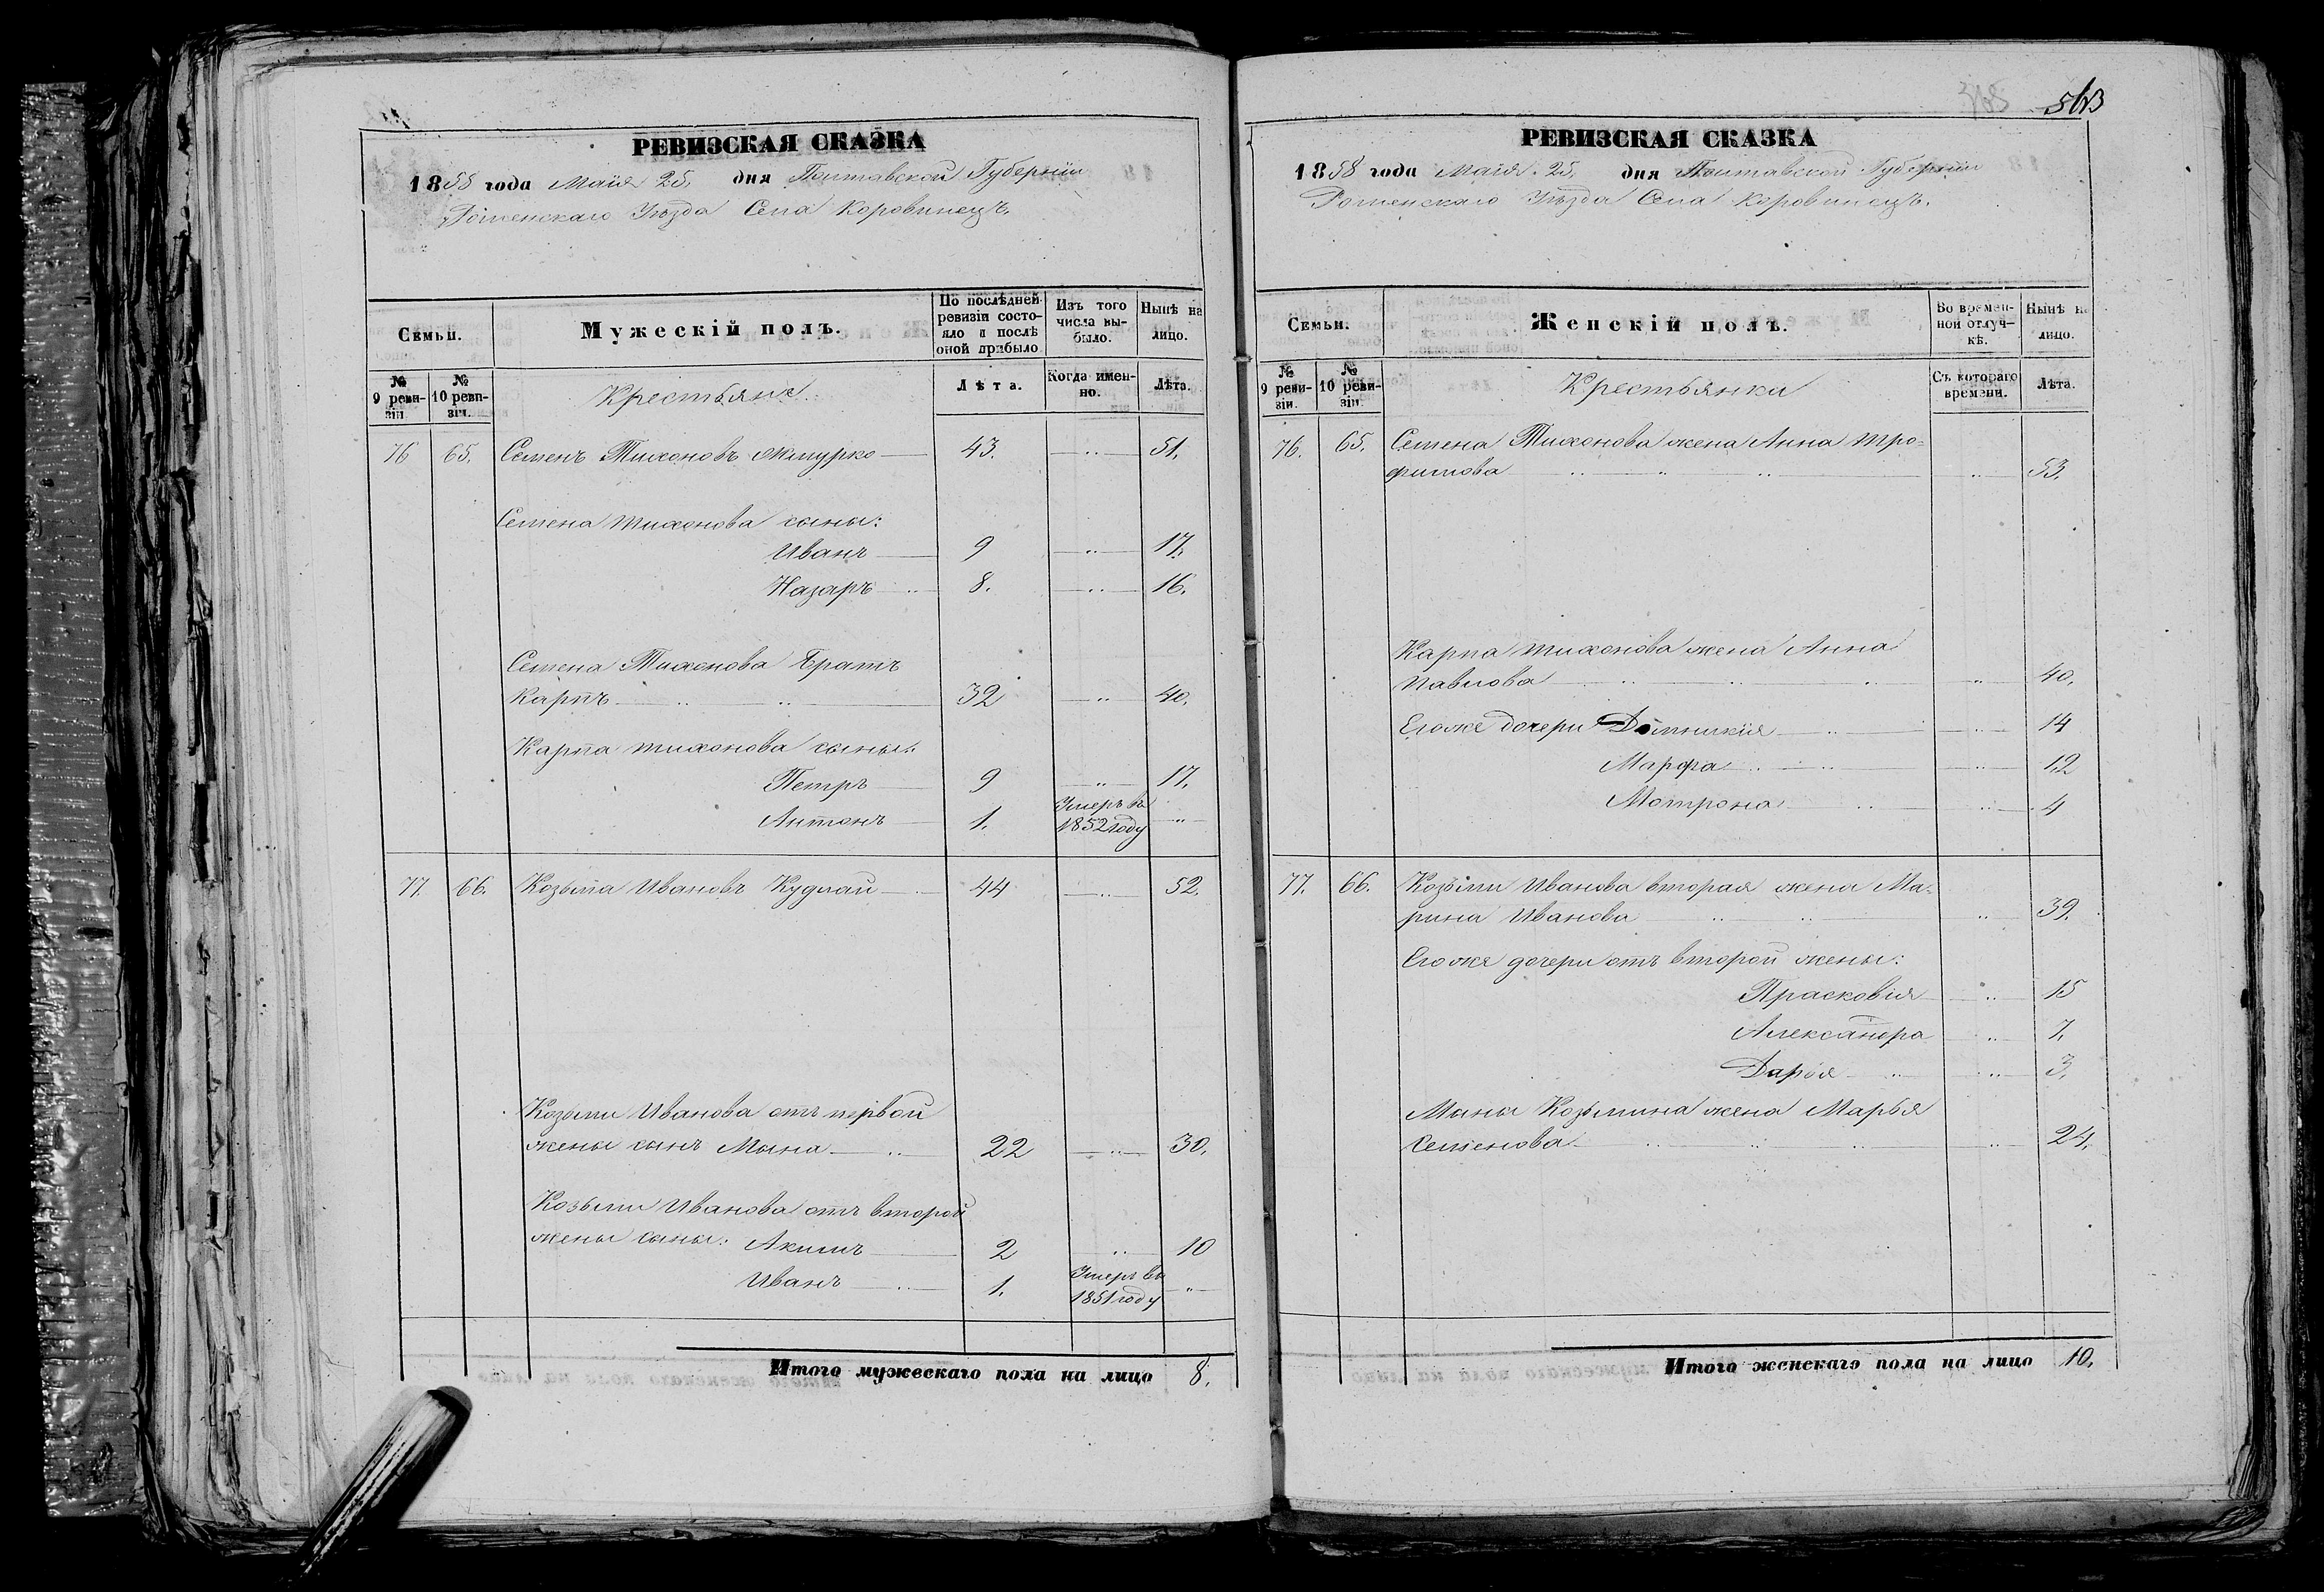 РЕВИЗСКАЯ СКАЗКА
1858 года Маія 25. дня Полтавской Губерніи
Роменскаго Уѣзда Села Коровинецъ.
Семьи.
Мужескій полъ.
По послѣдней ревизіи состояло и послѣ оной прибыло
Изъ того числа выбыло.
Нынѣ на лицо.
№ 9 ревизіи.
№ 10 ревизіи.
Крестьяне
Лѣта.
Когда именно.
Лѣта.
76 65. Семенъ Тихоновъ Жмурко 43. „ 51.
Семена Тихонова сыны:
Иванъ 9 „ 17.
Назаръ 8. „ 16.
Семена Тихонова братъ
Карпъ 32 „ 40.
Карпа Тихонова сыны:
Петръ 9 „ 17.
Антонъ 1. Умеръ въ 1852 году „
77. 66. Козьма Ивановъ Кудлай 44 „ 52.
Козьмы Иванова отъ первой
жены сынъ Мина 22 „ 30.
Козьмы Иванова отъ второй
жены сыны: Акимъ 2 „ 10
Иванъ 1. Умеръ въ 1851 году „
Итого мужескаго пола на лицо 8.
563
РЕВИЗСКАЯ СКАЗКА
1858 года Маія 25. дня Полтавской Губерніи
Роменскаго Уѣзда Села Коровинецъ.
Семьи.
Женскій полъ.
Во временной отлучкѣ.
Нынѣ на лицо.
№ 9 ревизіи.
№ 10 ревизіи.
Крестьянки
Съ котораго времени.
Лѣта.
76. 65. Семена Тихонова жена Анна Тро-
фимова „ 53.
Карпа Тихонова жена Анна
Павлова „ 40.
Егоже дочери Домникія „ 14
Марфа „ 12
Мотрона „ 4
77. 66. Козьмы Иванова вторая жена Ма-
рина Иванова „ 39.
Егоже дочери отъ второй жены:
Прасковія „ 15
Александра „ 7.
Дарья „ 3.
Мины Козьмина жена Марья
Семенова „ 24.
Итого женскаго пола на лицо 10.